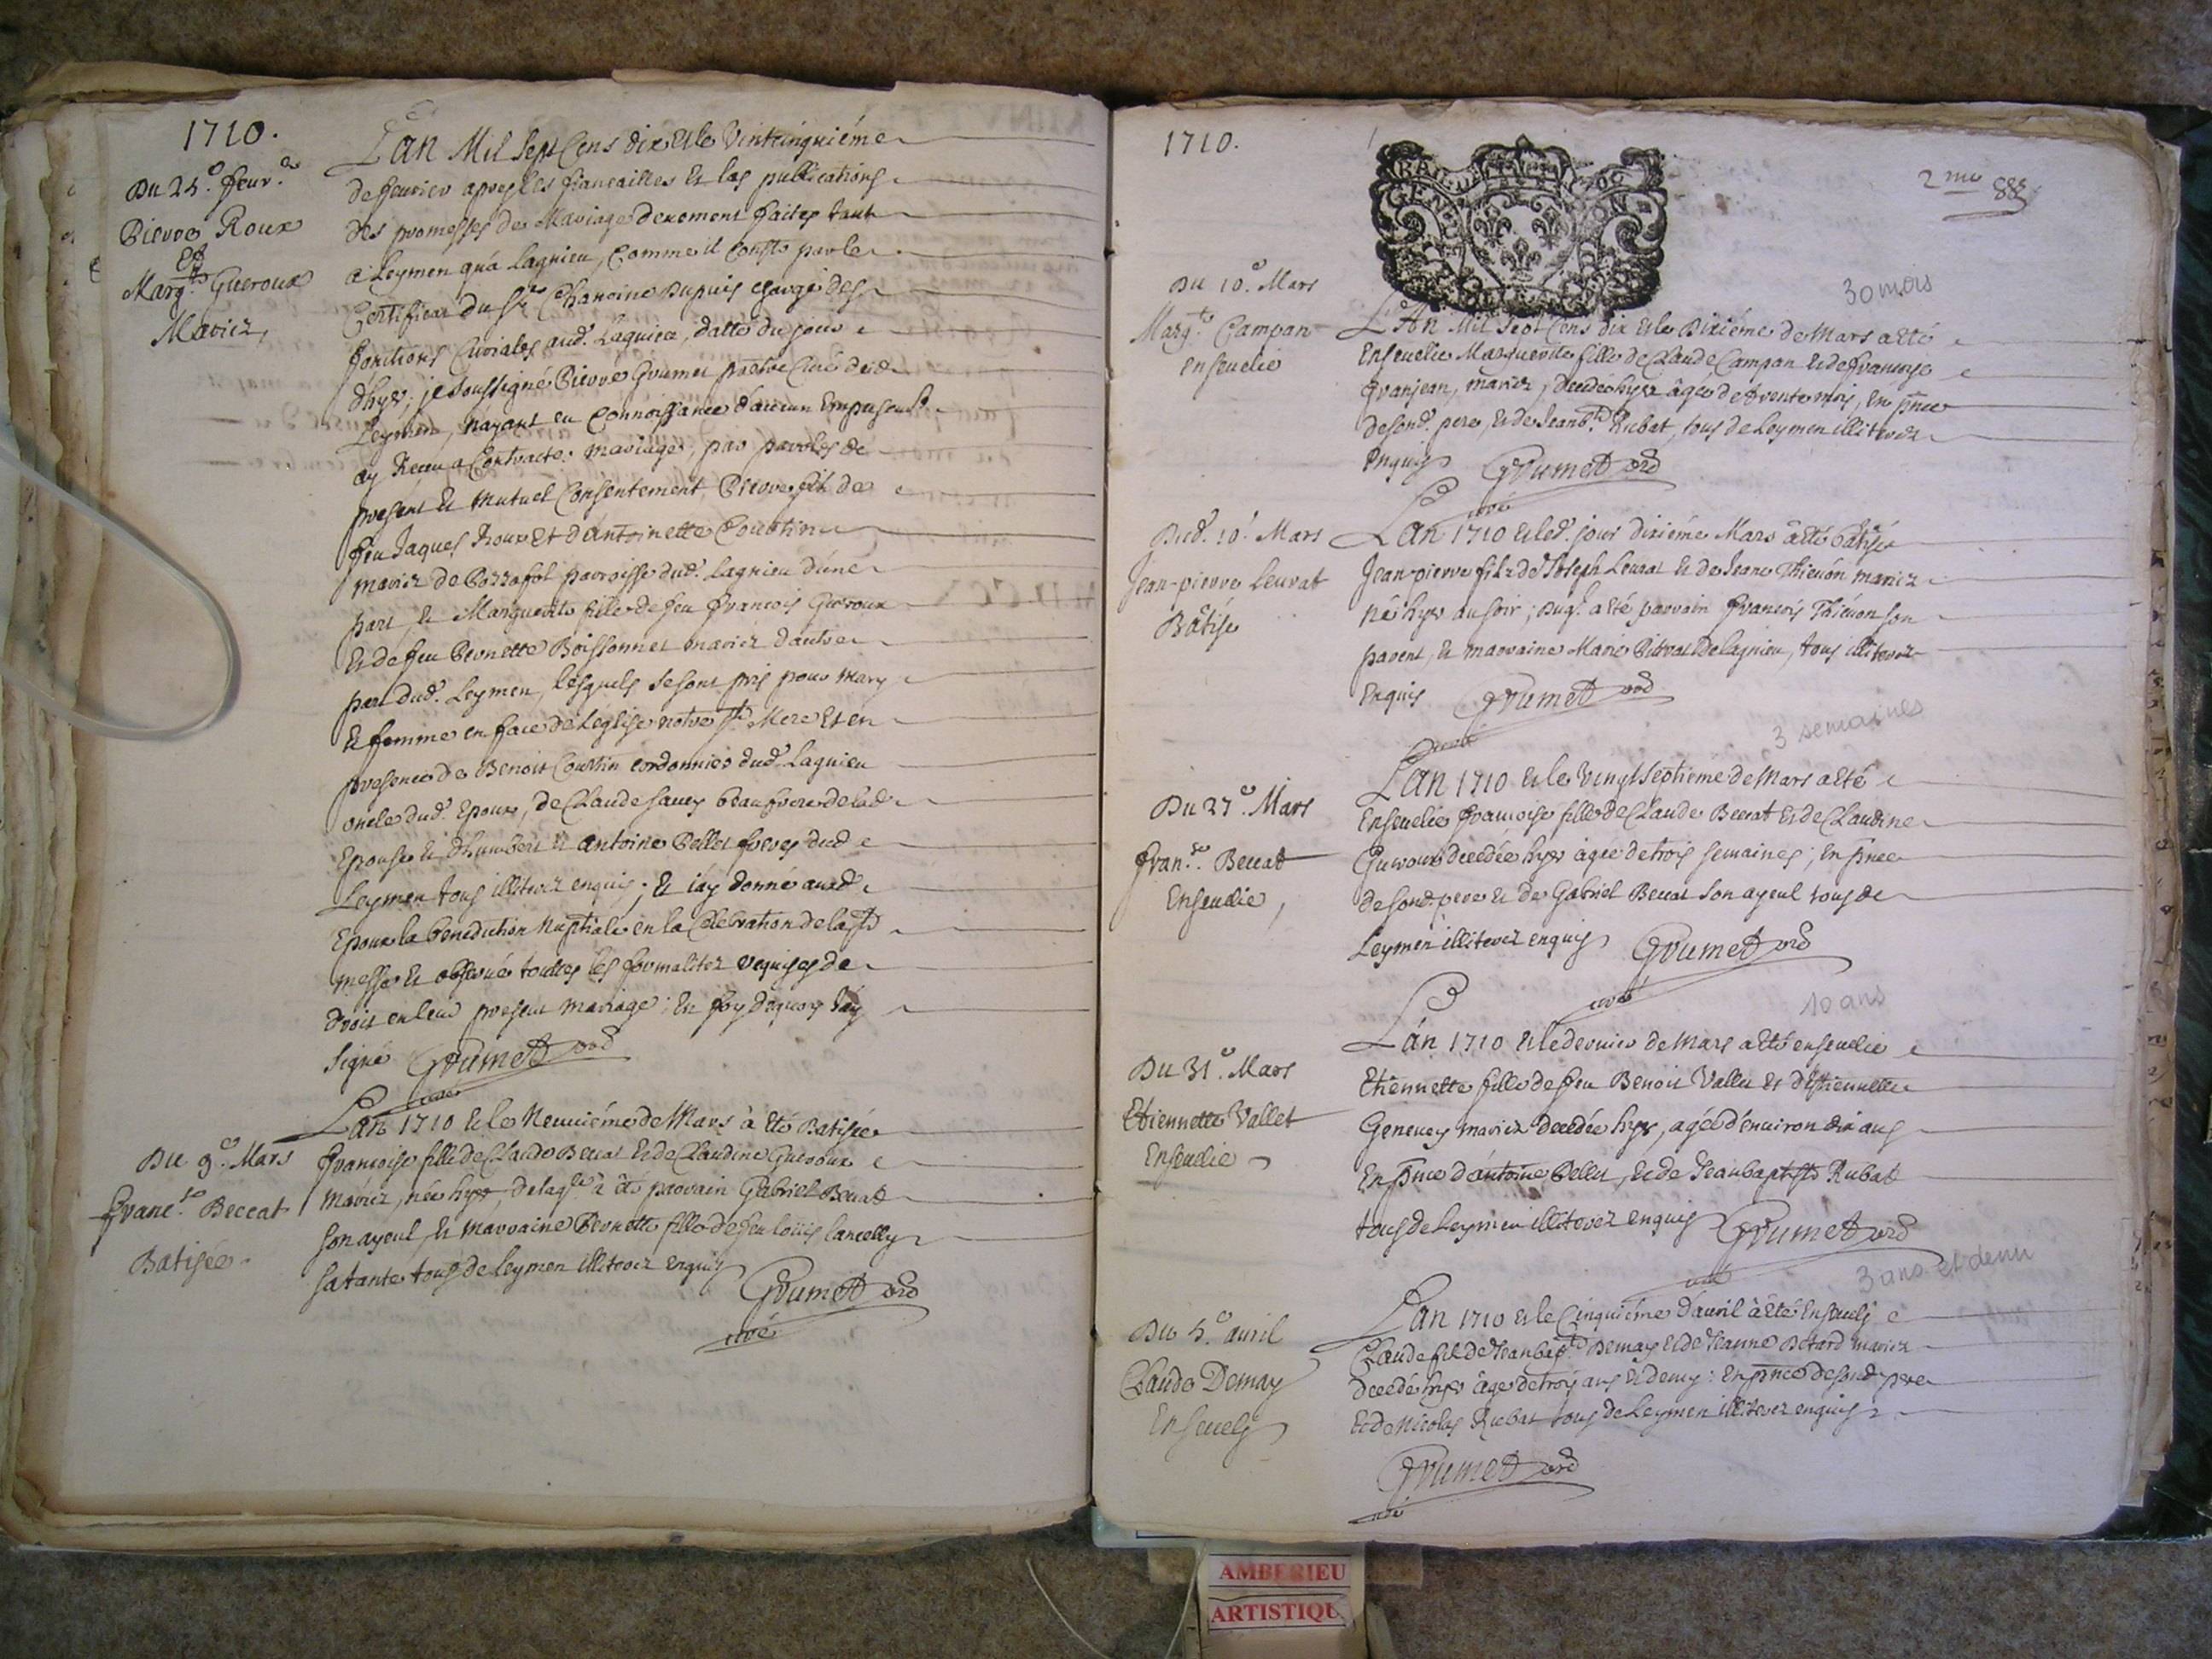 1710.
Du 25.e feur.er
Pierre Roux
Et
Marg.te Gueroux
Mariez,
L'an Mil Sept Cens dix Et le Vintcinquiéme
de feurier apres les fiancailles Et les publications
des promesses de Mariage deuement faites tant
a Leymen qu'a Lagnieu, Comme il Conste par le
Certificat du Sr Chanoine Dupuis chargé des
fonctions Curiales aud. Lagnieu, datté du jour
d'hyer, je soussigné Pierre Grumet prestre Curé dud.
Leymen, n'ayant eu Connoissance d'aucun Empeschement
ay Receu a Contracter mariage, par parolles de
present Et Mutuel Consentement, Pierre fils de
feu Jaques Roux Et d'Antoinette Courtin
mariez de Pozzafol parroisse dud. Lagnieu d'une
part, Et Marguerite fille de feu francois Gueroux
Et de feu Pernette Boissonnet mariez d'autre
part dud. Leymen, lesquels se sont pris pour Mary
Et femme en face de L'eglise notre Ste Mere Et en
presence de Benoit Courtin cordonnier dud. Lagnieu
oncle dud. Epoux, de Claude sauey beaufrere de lad.
Epouse Et d'humbert Et antoine Pellet freres dud.
Leymen tous illiterez enquis; Et i'ay donné auxd.
Epoux la benediction Nuptiale en la Celebration de la Ste
messe Et observé touttes les formalitez requises de
droit en leur present mariage; En foy dequoy i'ay
signé Grumet
curé
Du 9.e Mars
franc.se Beccat
Batisée.
L'an 1710 Et le Neuuiéme de Mars à Eté Batisée
francoise fille de Claude Beccat Et de Claudine Gueroux
mariez, née hyer, de laq.le à été parrain Gabriel Beccat
son ayeul, Et marraine Pernette fille de feu Loüis Lancelly
sa tante tous de Leymen illiterez enquis
Grumet
curé
1710.
2me 88
GENER
Du 10.e Mars
Marg.te Campan
enseuelie
30 mois
L'An Mil Sept Cens dix Et le Dixiéme de Mars a Eté
Enseuelie Marguerite fille de Claude Campan Et de francoise
Granjean, mariez, decedée hyer âgée de trente mois, En pnce
de sond. pere, Et de Jean b.te Rubat, tous de Leymen illiterez
enquis Grumet
curé
Dud. 10.e Mars
Jean-pierre Leurat
Bâtisé
L'an 1710 Et led. jour dixiéme Mars à Eté bâtisé
Jean-pierre fils de Joseph Leurat Et de Jeane Thieuon mariez
né hyer au soir; duq.l a eté parrain francois Thieuon son
parent, Et marraine Marie Pittrat de Lagnieu, tous illiterez
Enquis Grumet
curé
3 semaines
Du 27.e Mars
fran.se Beccat
Enseuelie,
L'an 1710 Et le vingt septieme de Mars a Eté
Enseuelie francoise fille de Claude Beccat Et de Claudine
Gueroux decedée hyer âgée de trois semaines; En pnce
de sond. pere Et de Gabriel Beccat son ayeul tous de
Leymen illiterez enquis Grumet
curé
10 ans
Du 31.e Mars
Etiennette Vallet
Enseuelie
L'an 1710 Et le dernier de Mars a Eté enseuelie
Etiennette fille de feu Benoit Vallet Et d'Etiennette
Geneuey mariez decedée hyer, agée d'enuiron dix ans
En pnce d'antoine Pellet, Et de Jean baptiste Rubat
tous de Leymen illiterez enquis Grumet
curé
3 ans et demi
Du 5.e auril
Claude Demay
Enseuely
L'an 1710 Et le Cinquiéme d'auril à Eté Enseuely
Claude fils de Jean bap.te Demay Et de Jeanne Bétard mariez
decedé hyer âgé de trois ans Et demy: En pnce de sond. pere
Et de Nicolas Rubat tous de Leymen illiterez enquis
Grumet
curé
AMBERIEU
ARTISTIQU